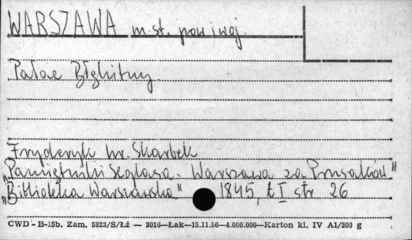 WARSZAWA m.st. pow i woj.
Pałac Błękitny
Fryderyk hr. Skarbek
"Pamiętniki Seglasa. Warszawa za Prusaków"
"Biblioteka Warszawska" 1845, t I str. 26
CWD - B-15b. Zam. 5823/S/Łż — 3016—Łak—15.11.56—4.000.000—Karton kl. IV A1/200 g